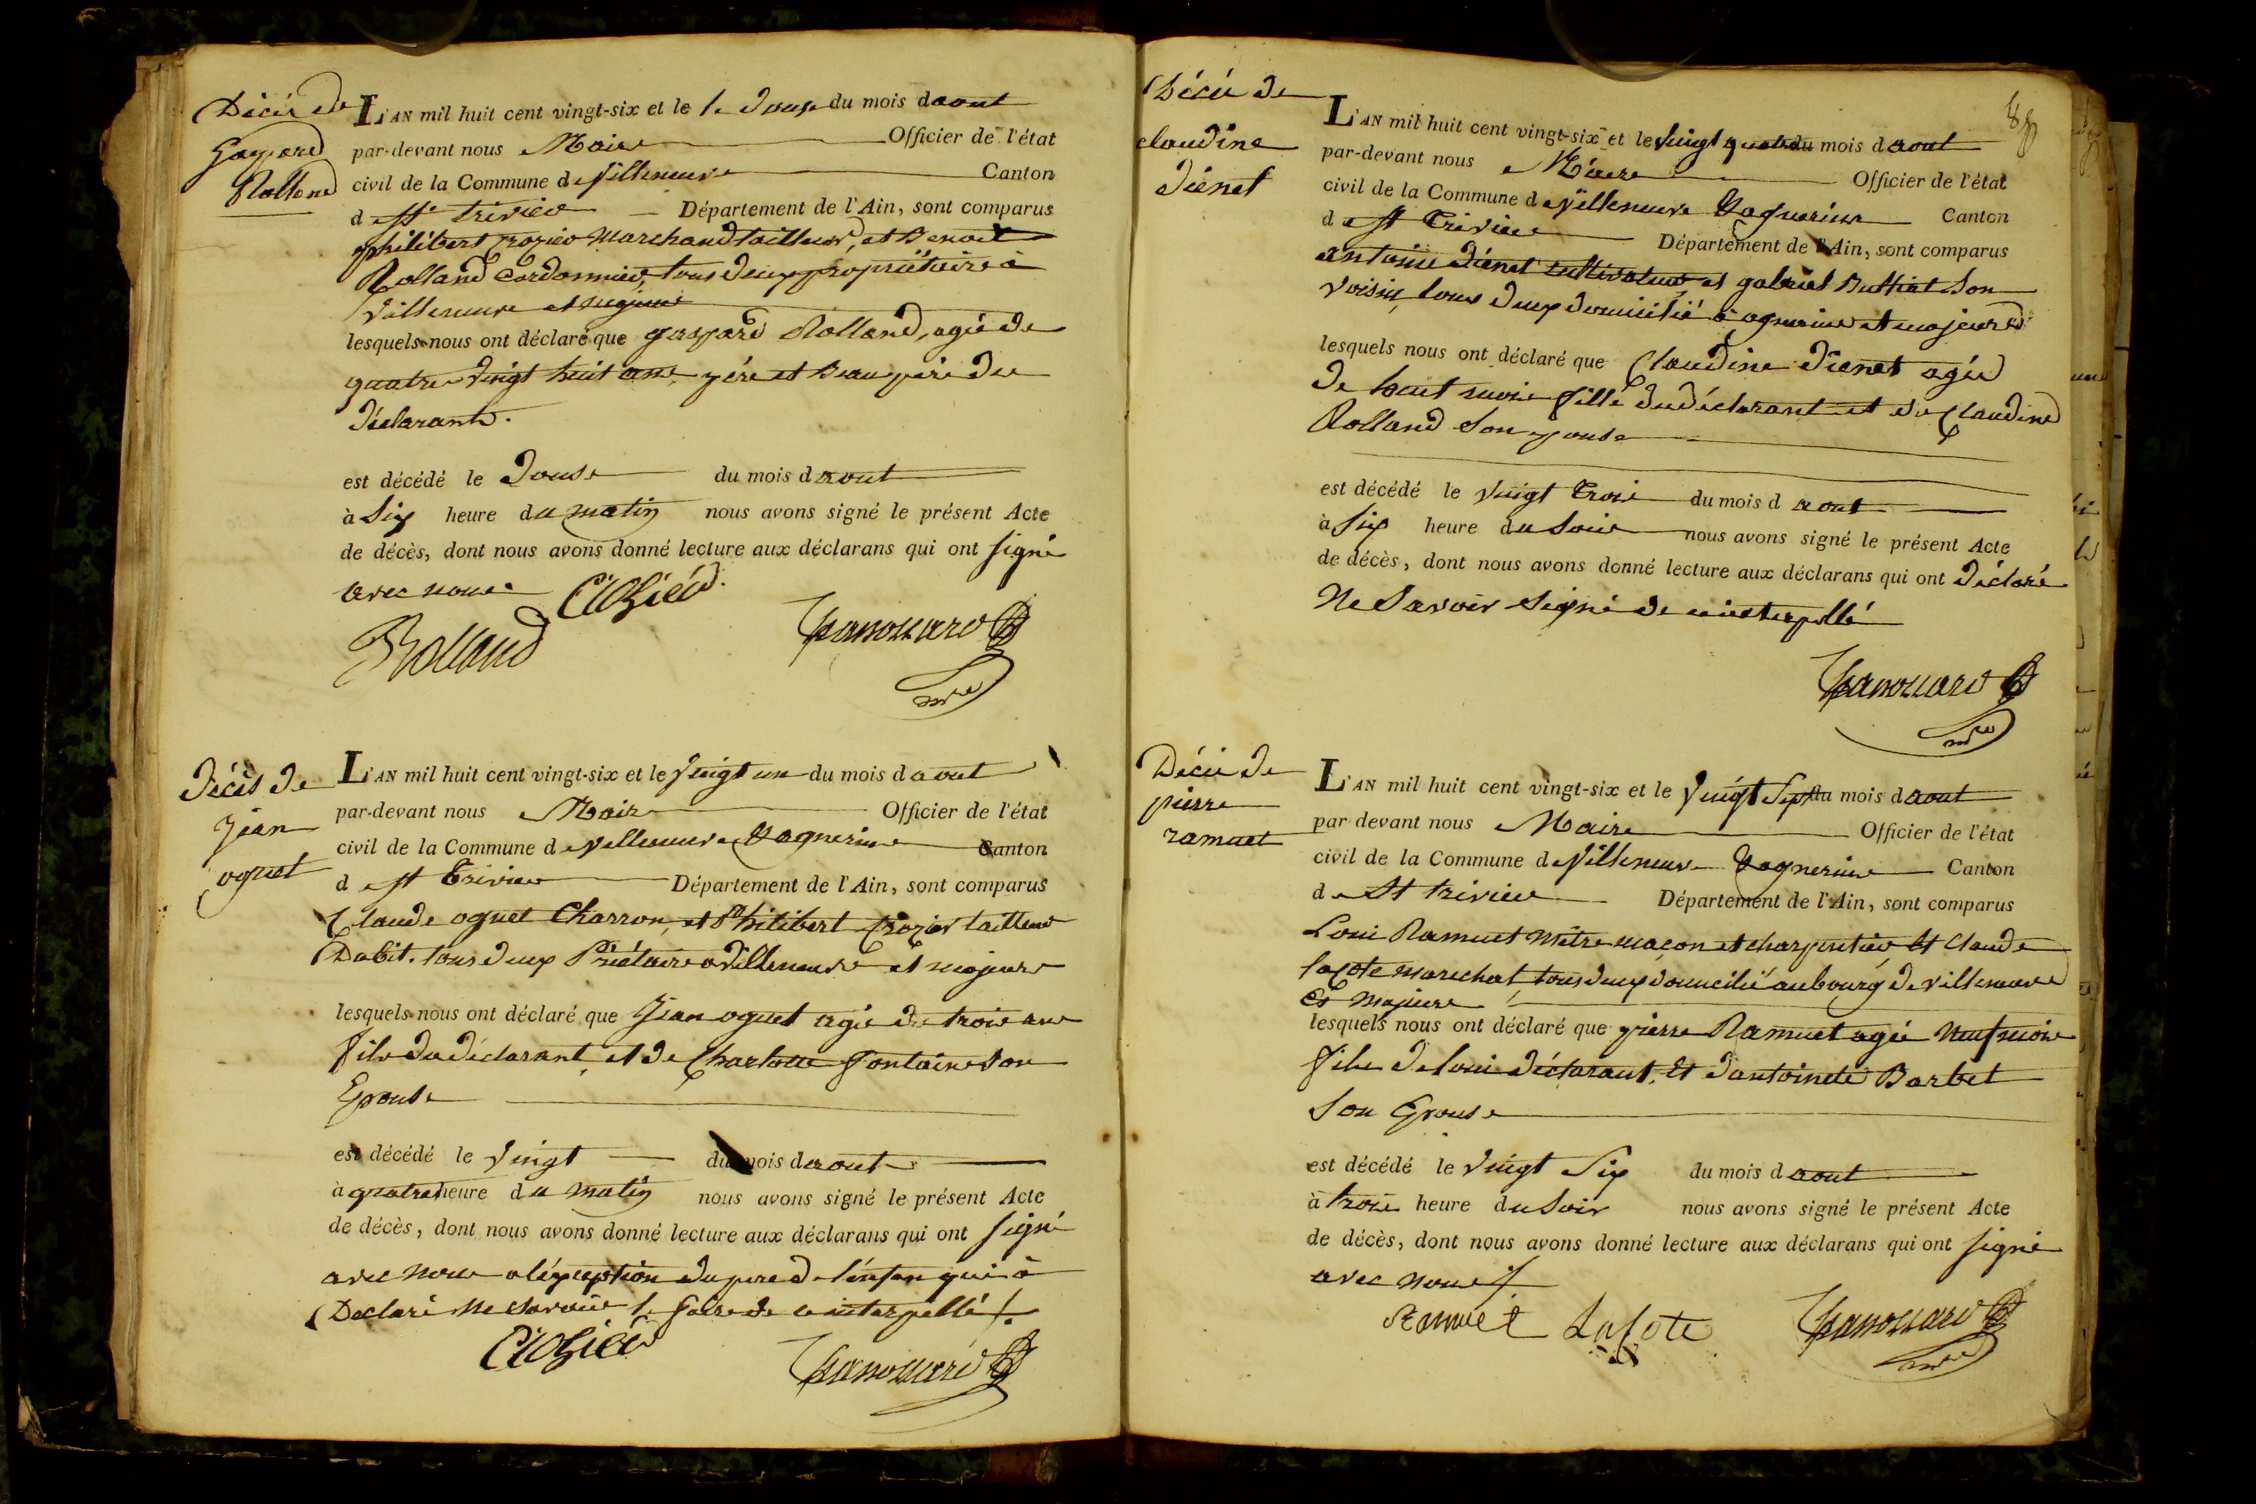 Décés de
Gaspard
Rolland
L'AN mil huit cent vingt-six et le le douse du mois daout
par-devant nous Maire Officier de l'état
civil de la Commune de Villeneuve Canton
de St trivier Département de l'Ain, sont comparus
philibert crozier Marchand tailleur, et Benoit
Rolland Cordonnier, tous deux propriétaire à
Villeneuve et majeurs
lesquels nous ont déclaré que gaspard Rolland, agée de
quatre vingt huit ans, pére et Beaupére des
déclarants.
est décédé le douse du mois daout
à Six heure du matin nous avons signé le présent Acte
de décès, dont nous avons donné lecture aux déclarans qui ont signé
avec nous Crozier
Rolland
décès de
jean
oguet
L'AN mil huit cent vingt-six et le Vingt un du mois daout
par-devant nous Maire Officier de l'état
civil de la Commune de Villeneuve Dagnerins Canton
de St Trivier Département de l'Ain, sont comparus
Claude oguet Charron, et Philibert crozier tailleur
Dabit. tous deux à Villeneuve et majeurs
lesquels nous ont déclaré que Jean oguet agée de trois ans
fils du déclarant, et de Charlotte fontaine son
Epouse
est décédé le Vingt du mois daout
à quatre heure du matin nous avons signé le présent Acte
de décès, dont nous avons donné lecture aux déclarans qui ont signé
avec nous a léxception du pere de lénfan qui à
Declaré ne savoir le faire de ce interpellé
Crozier
Décés de
claudine
diénet
88
L'AN mil huit cent vingt-six et le Vingt quatre du mois daout
par-devant nous Maire Officier de l'état
civil de la Commune de Villeneuve Dagnerins Canton
de St Trivier Département de l'Ain, sont comparus
antoine diénet cultivateur et gabriel Buttiat son
voisin tous deux domicilié à agnerins et majeurs
lesquels nous ont déclaré que Claudine diénet agée
de huit mois fille du déclarant et de Claudine
Rolland son epouse
est décédé le Vingt Trois du mois d aout
à Six heure du Soir nous avons signé le présent Acte
de décès, dont nous avons donné lecture aux déclarans qui ont déclaré
Ne Savoir Signé de ce interpellé
Décés de
pierre
ramuet
L'AN mil huit cent vingt-six et le Vingt Sept du mois daout
par-devant nous Maire Officier de l'état
civil de la Commune de Villeneuve Dagnerins Canton
de St trivier Département de l'Ain, sont comparus
Loui Ramuet Mètre maçon et charpentier Et Claude
lacote marechal, tous deux domicilié au bourg de villeneuve
Et Majeurs
lesquels nous ont déclaré que pierre Ramuet agée Neuf mois
fils de loui déclarant, Et dantoineté Barbet
Son Epouse
est décédé le Vingt Six du mois daout
à trois heure du Soir nous avons signé le présent Acte
de décès, dont nous avons donné lecture aux déclarans qui ont signé
avec nous
Ramuet LaCote